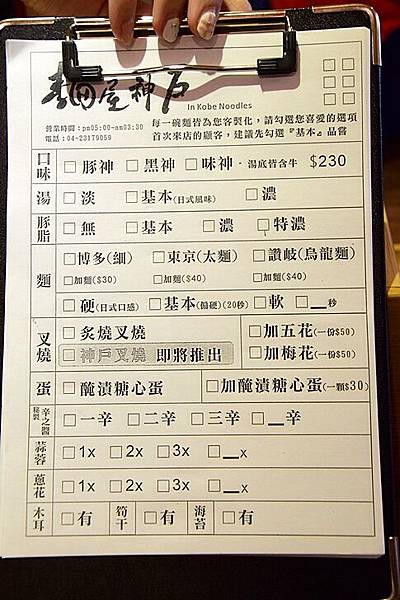 麺屋神戶
In Kobe Noodles
營業時間：pm05:00-am03:30
電話：04-23179059
每一碗麵皆為您客製化，請勾選您喜愛的選項
首次來店的顧客，建議先勾選『基本』品嘗
口味 □豚神 □黑神 □味神 - 湯底皆含牛 $230
湯 □淡 □基本(日式風味) □濃
豚脂 □無 □基本 □濃 □特濃
麵 □博多(細) □東京(太麵) □讚岐(烏龍麵)
□加麵($30) □加麵($40) □加麵($40)
□硬(日式口感) □基本(偏硬)(20秒) □軟 □__秒
叉燒 □炙燒叉燒 □加五花(一份$50)
□神戶叉燒 即將推出 □加梅花(一份$50)
蛋 □醃漬糖心蛋 □加醃漬糖心蛋(一顆$30)
秘製辛之醬 □一辛 □二辛 □三辛 □__辛
蒜蓉 □1x □2x □3x □__x
蔥花 □1x □2x □3x □__x
木耳 □有 筍干 □有 海苔 □有